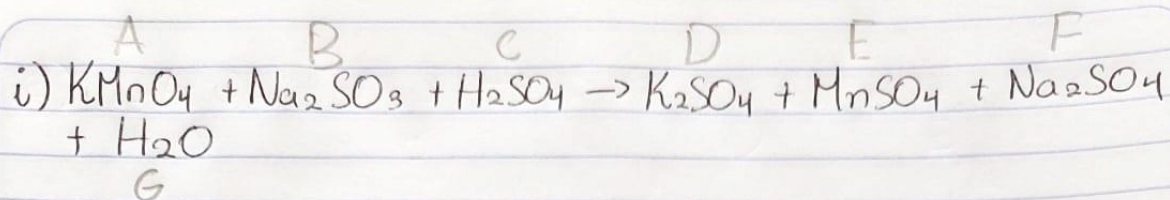 A B C D E F
i) KMnO4 + Na2SO3 + H2SO4 → K2SO4 + MnSO4 + Na2SO4
+ H2O
G